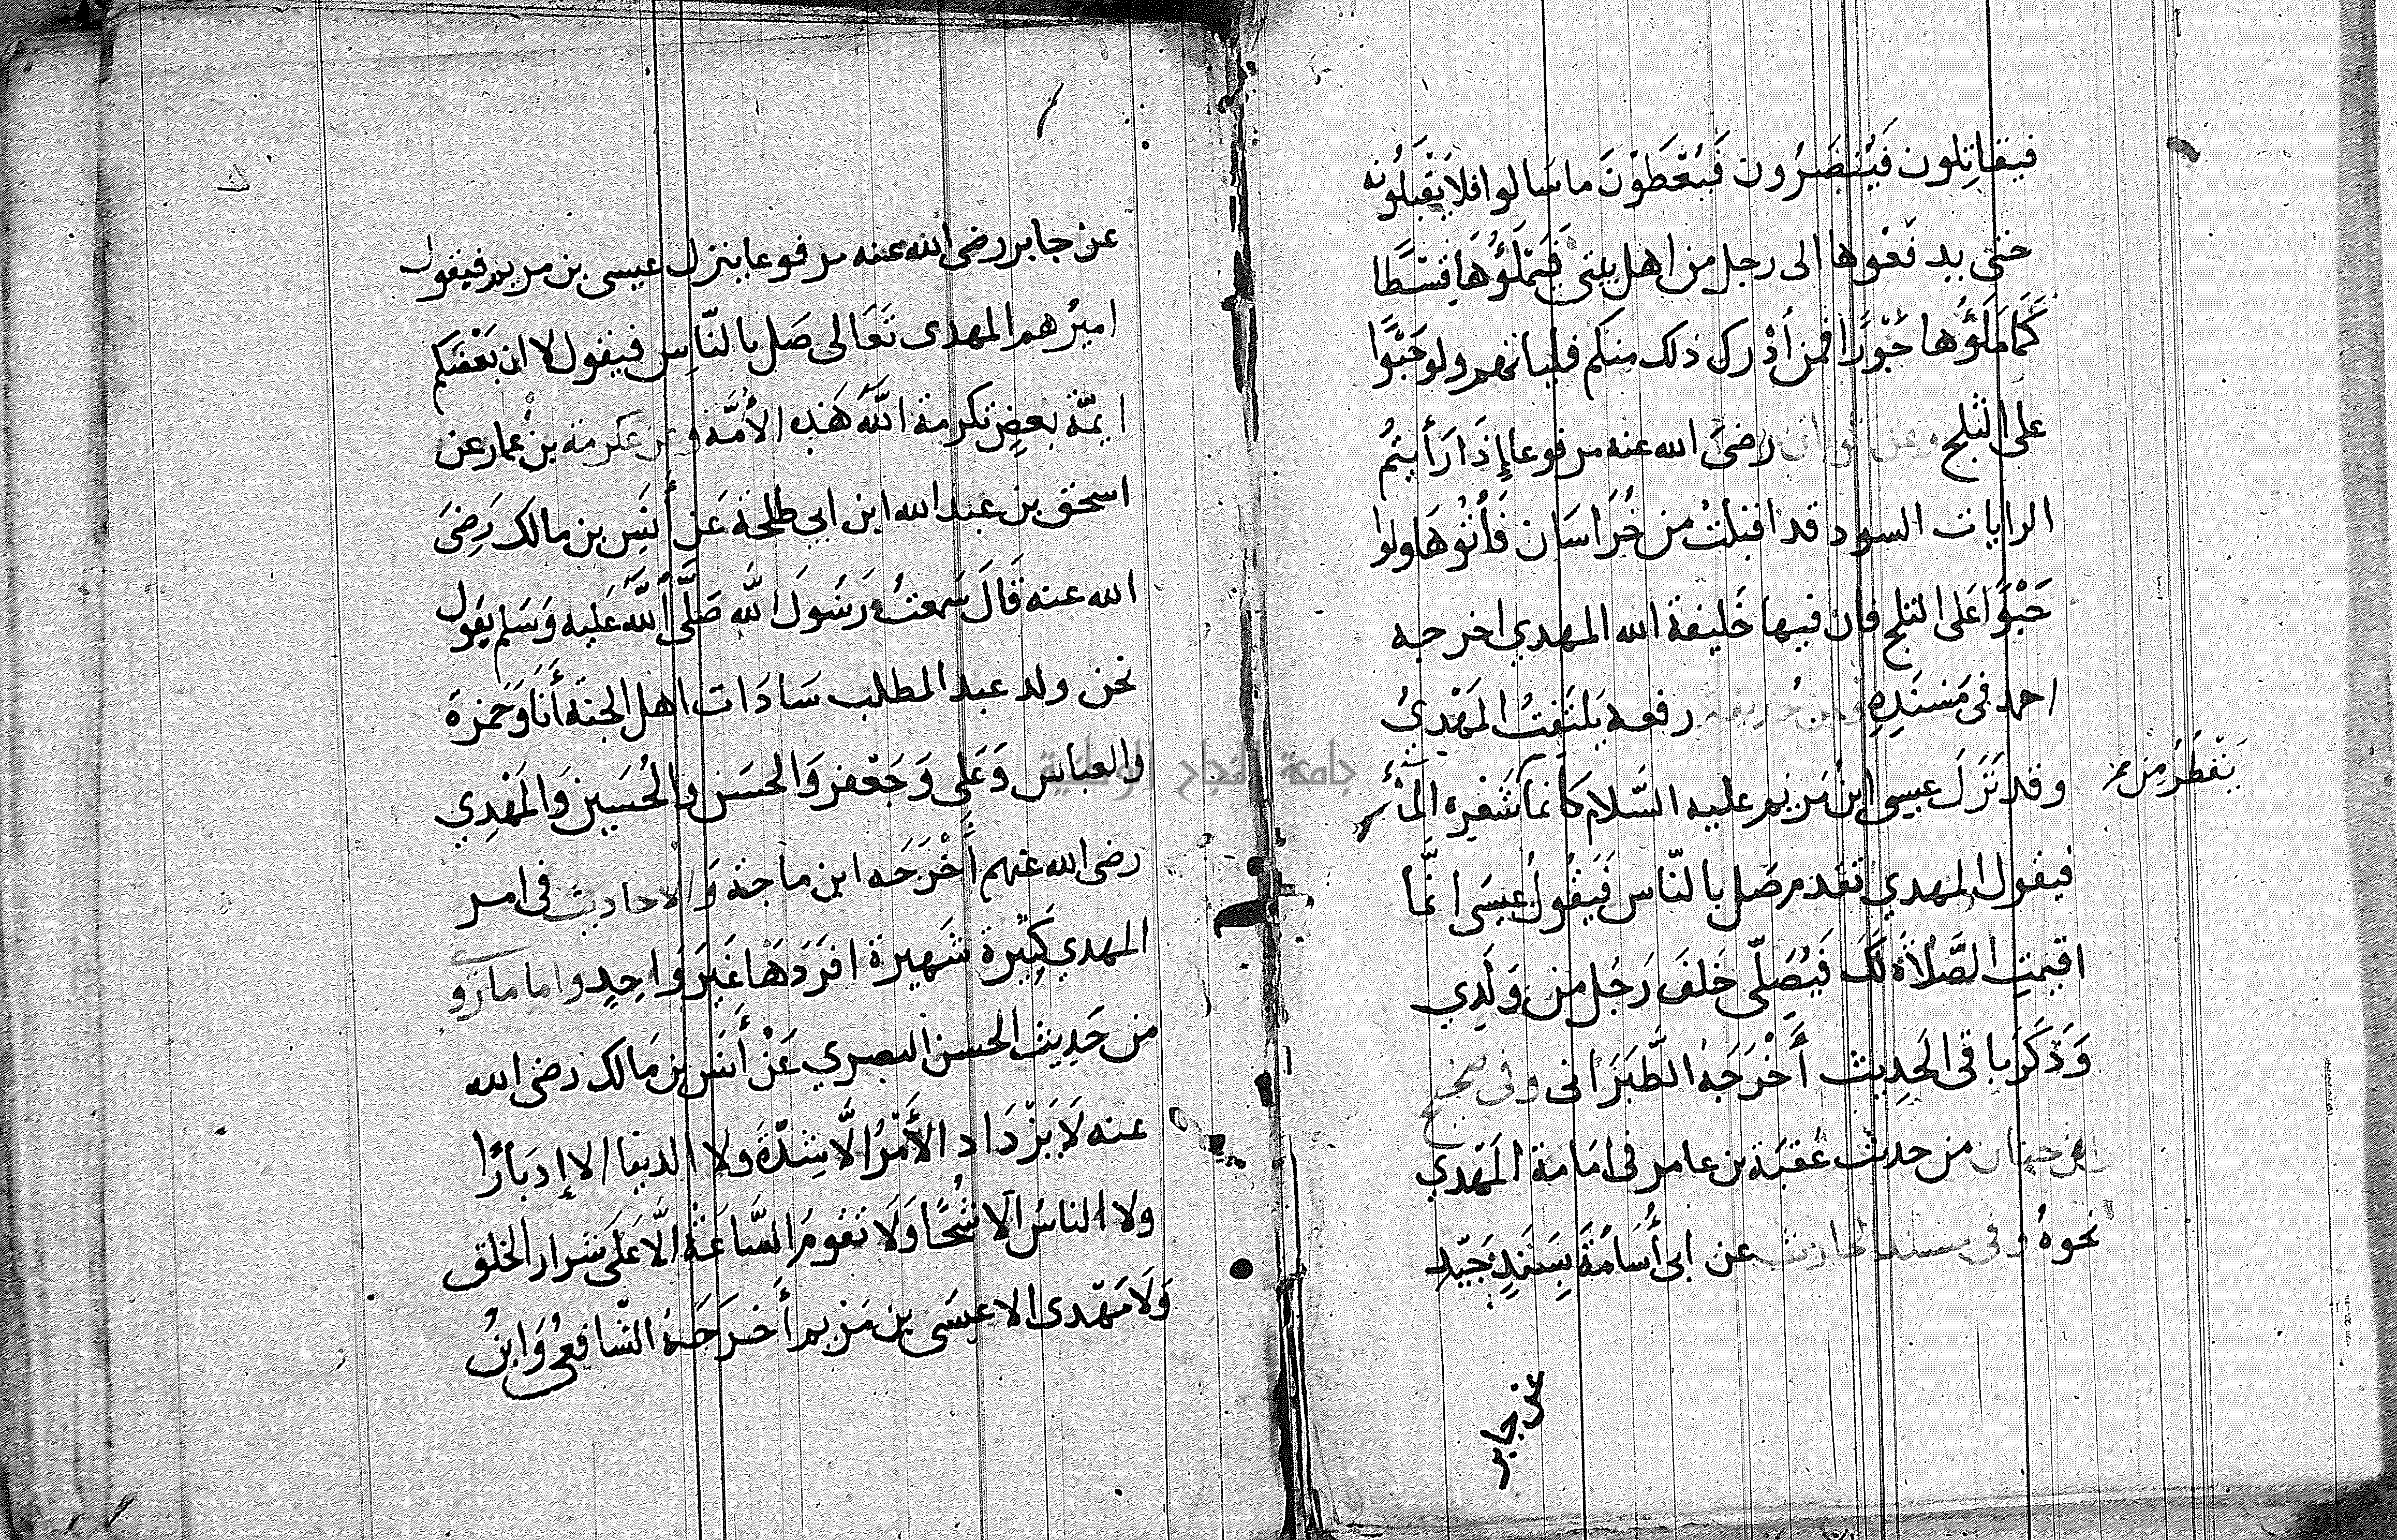 فيقاتِلون فَيُنصَرُون فَيُعْطَوْنَ ما سَالوا فلا يَقْبَلُونه
حتى يدفَعُوها الى رجل من اهل بيتى فَيَمْلَؤُهَا قِسْطًا
كَمَا مَلَؤُها جَوْرًا فمن أدْرك ذلك منكم فلياتهم ولو حَبْوًا
على الثلج وعن ثوبان رضىَ الله عنه مرفوعا إِذَا رَأَيتُم
الرايات السود قد اقبلتْ من خُرَاسَان فَأْتُوهَا ولو
حَبْوًا عَلى الثلج فان فيها خَليفة الله المهدي اخرجه
احمد فى مَسنَدِهِ وعن حذيفة رفعه يَلتَفِتُ المَهْدِيُ
وقد نَزَلَ عيسى ابنُ مَريَم عليه السَّلام كَأنما شَعْره المَأ
يَقْطُرُ مِن
فيقول المهدي تقدم صَل بالنّاس فَيَقُولُ عِيسَى انَّمَا
اقيمتِ الصَّلاَةُ لَكَ فَيُصَلّى خَلفَ رَجُل من وَلَدِي
وَذَكَرَ باقى الحَدِيث أَخْرَجَهُ الطَّبَرَانى وفى صحيح
ابن حبان من حدث عُقبَة بن عامر فى امَامة المَهْدِي
نحوهُ وفى مسند الحارث عن ابى أُسَامَةَ بِسَنَدٍ جَيّد
عن جابر
عن جابر رضى الله عنه مرفوعا ينزل عيسى بن مريم فيقول
اميرُهم المهدى تَعَالى صَل بالنّاس فيقول لا ان بَعْضَكم
ايمّة بعضٍ تكرمة اللَّه هَذِه الأُمَّة وعن عكرمة بن عمار عن
اسحق بن عبد الله ابن ابي طلحَة عَن أَنَس بن مالك رَضِىَ
الله عنه قَالَ سَمعتُ رَسُولَ اللَّه صَلَّى اللَّه عَليه وَسَلم يَقول
نحن ولد عبد المطلب سَادَات اهل الجنة أَنَا وَحَمزة
والعباس وَعَلى وَجَعْفر وَالحسَن والحُسَين وَالمَهْدِي
رضى الله عنهم أَخْرَجَه ابن ماجة وَالاحاديث فى امر
المهدي كَثِيرة شَهِيرة افرَدَهَا غَيرَ وَاحِدٍ واما ما رَوى
من حَدِيث الحسن البصري عَنْ أَنَس بن مَالك رضى الله
عنه لاَ يَزْدَاد الأَمْرُ الَّا شِدَّةً ولا الدينا الا إدبَارًا
ولا الناسُ الا شُحًّا وَلَا تَقومُ السَّاعَةُ الَّا عَلَى شرار الخلق
وَلَا مَهْدى الا عِيسَى بن مَريم أَخرَجَهُ الشّافِعى وَابنُ
جامعة النجاح الوطنية